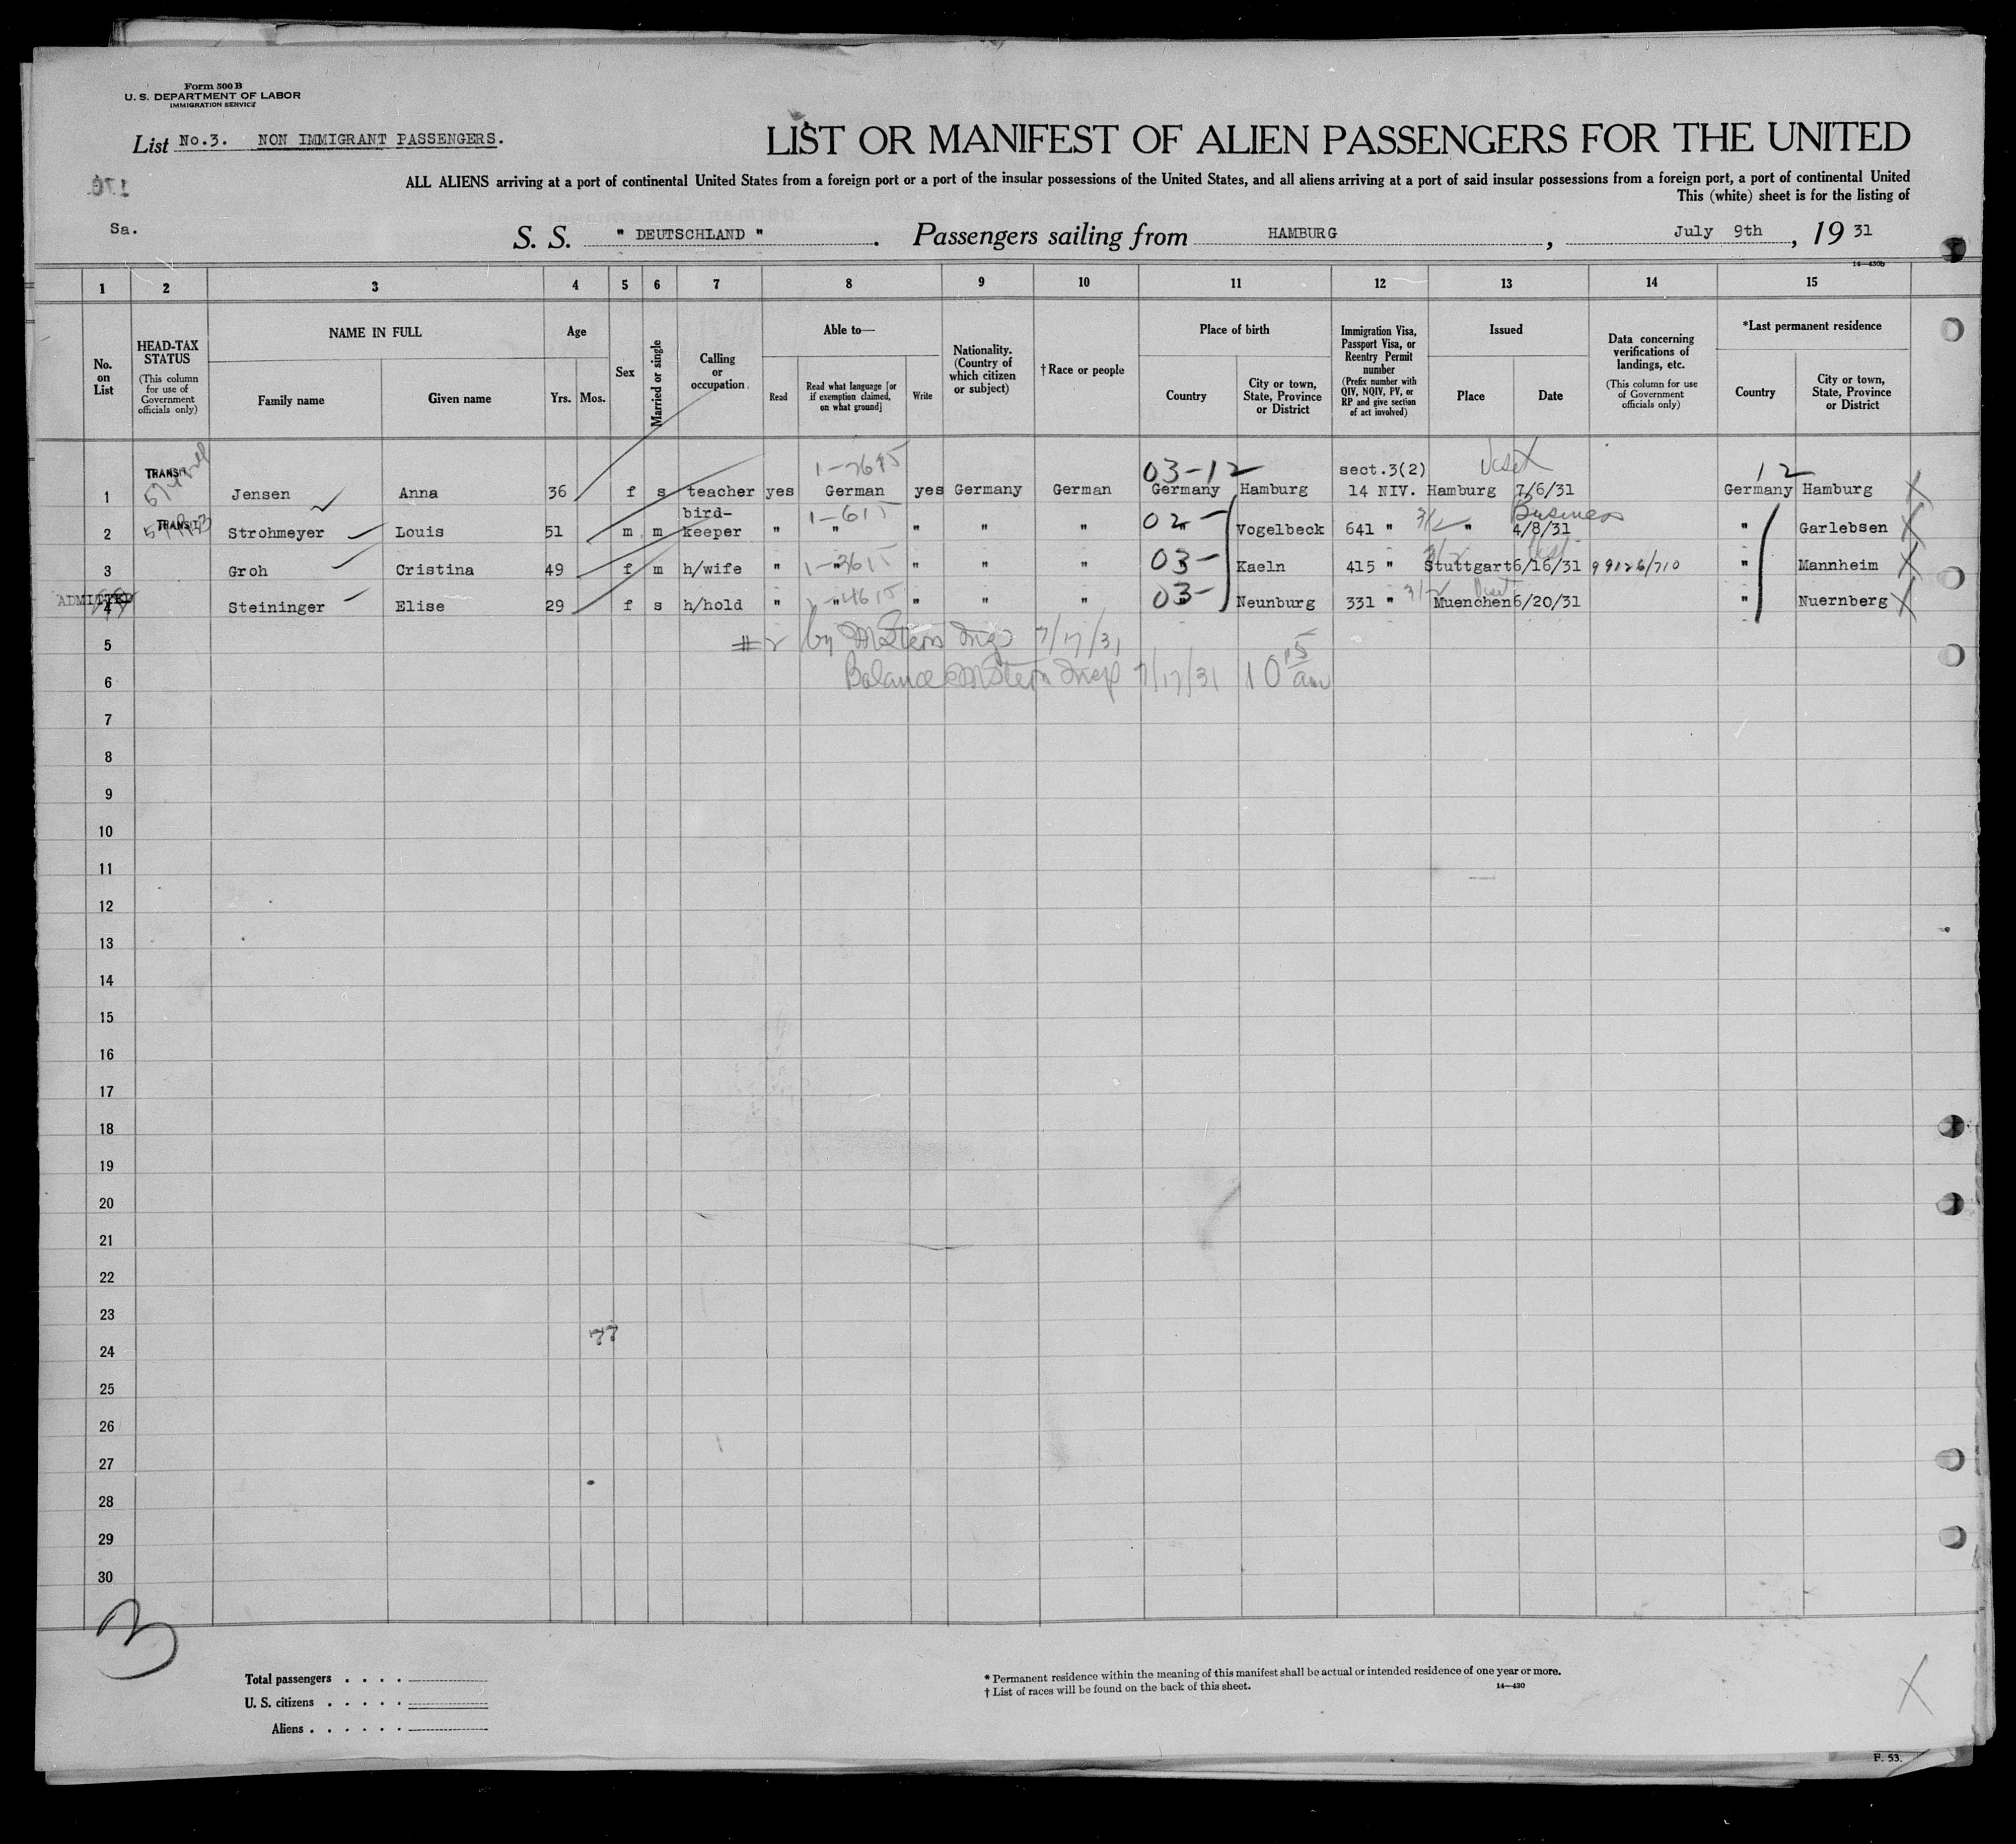 Form 500 B
U. S. DEPARTMENT OF LABOR
IMMIGRATION SERVICE
List No.3. NON IMMIGRANT PASSENGERS.
LIST OR MANIFEST OF ALIEN PASSENGERS FOR THE UNITED
ALL ALIENS arriving at a port of continental United States from a foreign port or a port of the insular possessions of the United States, and all aliens arriving at a port of said insular possessions from a foreign port, a port of continental United
This (white) sheet is for the listing of
Sa.
S. S. " DEUTSCHLAND " . Passengers sailing from HAMBURG , July 9th , 19 31
14—430b
1 2 3 4 5 6 7 8 9 10 11 12 13 14 15
No. on List
HEAD-TAX STATUS (This column for use of Government officials only)
NAME IN FULL
Family name Given name
Age
Yrs. Mos.
Sex
Married or single
Calling or occupation
Able to—
Read Read what language [or if exemption claimed, on what ground] Write
Nationality. (Country of which citizen or subject)
†Race or people
Place of birth
Country City or town, State, Province or District
Immigration Visa, Passport Visa, or Reentry Permit number (Prefix number with QIV, NQIV, PV, or RP and give section of act involved)
Issued
Place Date
Data concerning verifications of landings, etc. (This column for use of Government officials only)
*Last permanent residence
Country City or town, State, Province or District
TRANSIT 1-2695 03-12 sect.3(2) Visit 12
1 Jensen Anna 36 f s teacher yes German yes Germany German Germany Hamburg 14 NIV. Hamburg 7/6/31 Germany Hamburg
TRANSIT bird- 1-615 02- 3/2 Business
2 Strohmeyer Louis 51 m m keeper " " " " " " Vogelbeck 641 " " 4/8/31 " Garlebsen
3 Groh Cristina 49 f m h/wife " 1-3615 " " " " 03- Kaeln 415 " Stuttgart 6/16/31 99126/710 " Mannheim
ADMITTED
4 Steininger Elise 29 f s h/hold " -4615 " " " " 03- Neunburg 331 " 3/2 Muenchen Visit 6/20/31 " Nuernberg
5 #2 by M Stern Insp 7/17/31
6 Balance M Stern Insp 7/17/31 10 15 am
7
8
9
10
11
12
13
14
15
16
17
18
19
20
21
22
23
77
24
25
26
27
28
29
30
3
Total passengers . . . .
U. S. citizens . . . . .
Aliens . . . . . .
* Permanent residence within the meaning of this manifest shall be actual or intended residence of one year or more.
† List of races will be found on the back of this sheet.
14—430
F. 53.